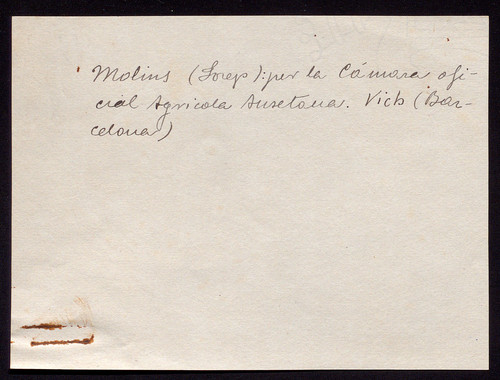 Molins (Josep): per la Cámara ofi-
cial Agricola Ausetana. Vich (Bar-
celona)